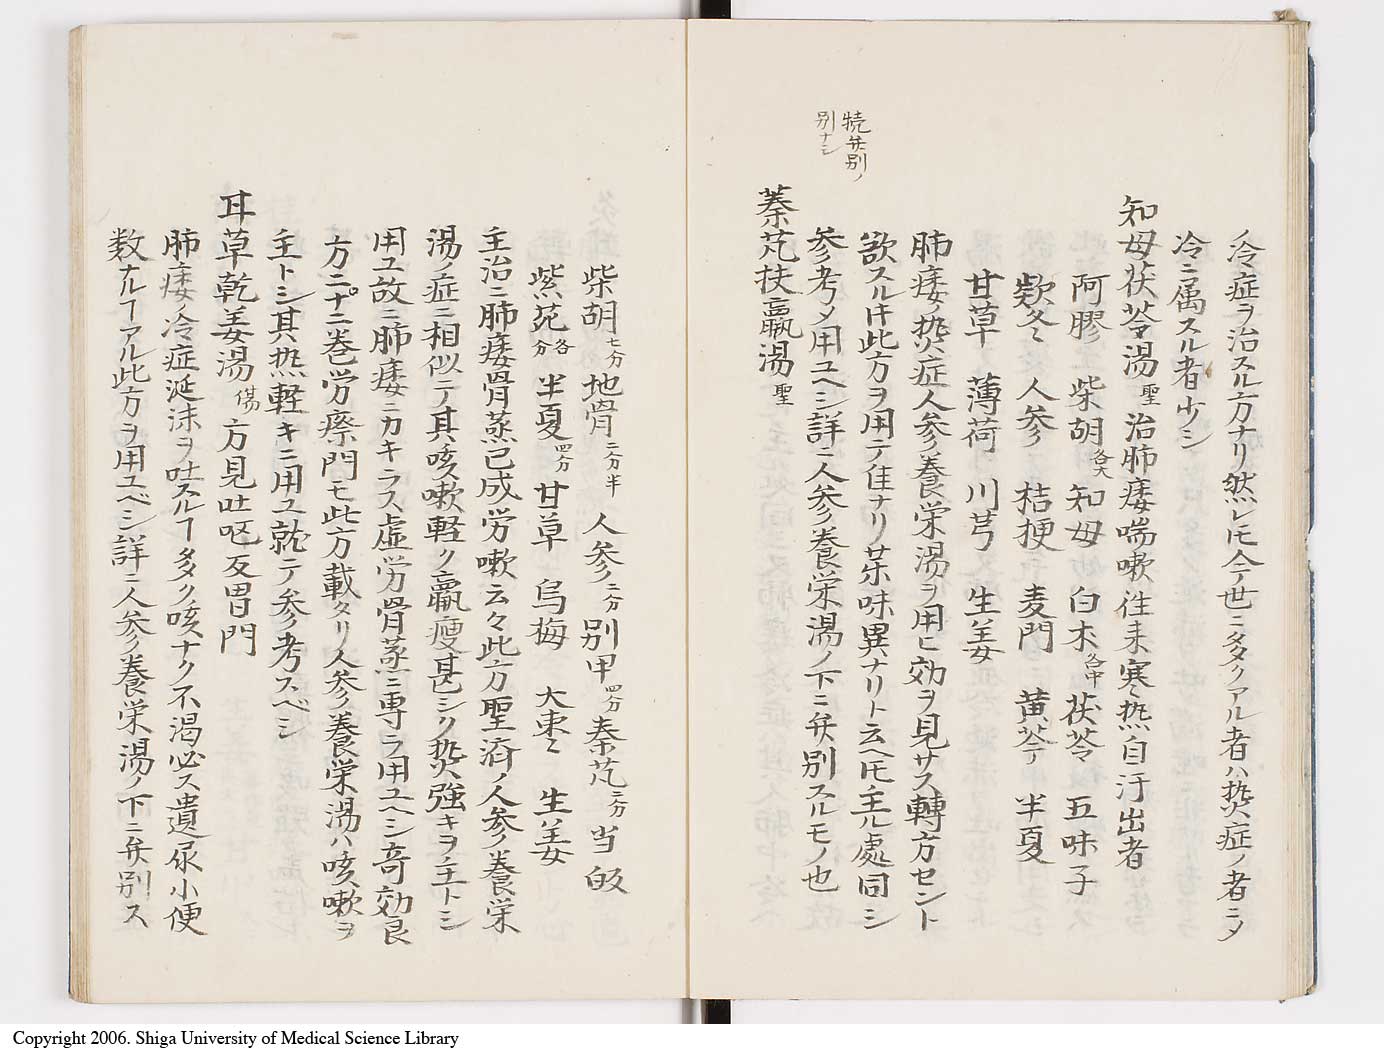 ノ冷症ヲ治スル方ナリ然レ𪜈今世ニ多クアル者ハ热症ノ者ニメ
冷ニ属スル者少シ
知母茯苓湯 聖 治肺痿喘嗽往来寒热自汗出者
阿膠 柴胡各大 知母 白朮各中 茯苓 五味子
欵冬 人参 桔梗 麦門 黄芩 半夏
甘草 薄荷 川芎 生姜
肺痿ノ热症人参養栄湯ヲ用ヒ効ヲ見サス轉方セント
欲スル𪜈此方ヲ用テ佳ナリ茱味異ナリト云ヘ𪜈主ル處同シ
参考メ用ユヘシ詳ニ人参養栄湯ノ下ニ弁別スルモノ也
別ナシ
秦芃扶羸湯 聖
柴胡七分 地骨二分半 人参二分 別甲四分 秦芃二分 当皈
紫苑各分 半夏四分 甘草 烏梅 大枣 生姜
主治ニ肺痿骨蒸已成労嗽云々此方聖済ノ人参養栄
湯ノ症ニ相似テ其咳嗽軽ク羸瘦甚シク热強キヲ主トシ
用ユ故ニ肺痿ニカキラス虚労骨蒸ニ専ラ用ユヘシ奇効良
方ニナニ巻労瘵門モ此方載タリ人参養栄湯ハ咳嗽ヲ
主トシ其热軽キニ用ユ就テ参考スベシ
耳草乾姜湯 傷 方見吐呕反胃門
肺痿冷症涎沫ヲ吐スルヿ多ク咳ナク不渇必ス遺尿小便
数ナルヿアル此方ヲ用ユベシ詳ニ人参養栄湯ノ下ニ弁別ス
Copyright 2006. Shiga University of Medical Science Library